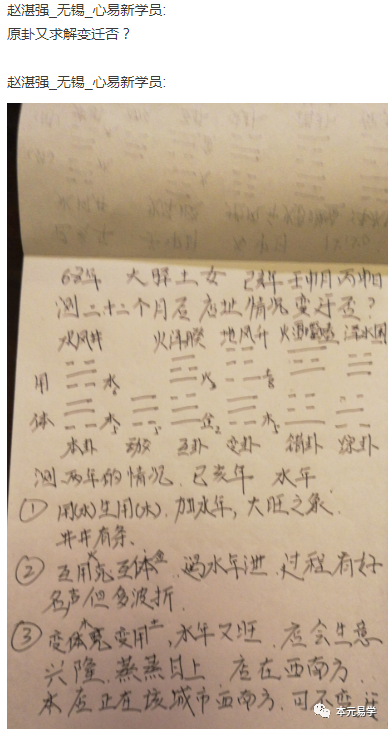 赵湛强_无锡_心易新学员:
原卦又求解变迁否？
赵湛强_无锡_心易新学员:
68年 大驿土女 己亥年壬申月丙申日
测二十二个月后店址情况变迁否？
水风井 火泽睽 地风升 火雷噬嗑 泽水困
用 水6 火3 土8
体 木5 金2 木5
本卦 动爻 互卦 变卦 错卦 综卦
测两年的情况 己亥年 水年
① 用(水)生用(木)，加水年，大旺之象，
井井有条。
② 互用火克互体金 遇水年泄，过程有好
名声但多波折。
③ 变体木克变用土，水年又旺，店会生意
兴隆，蒸蒸日上，店在西南方，
本店正在该城市西南方，可不变迁
本元易学